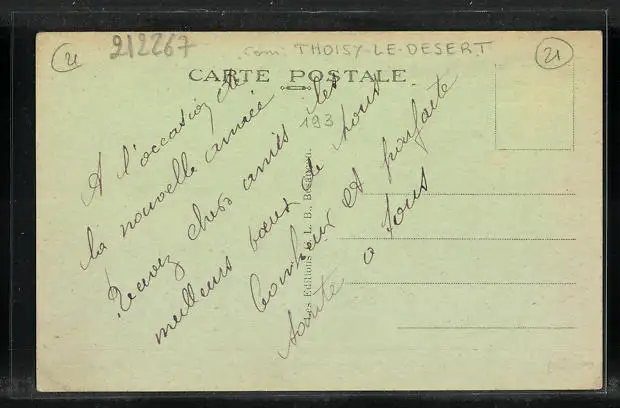 21
212267
Com: THOISY-LE-DESERT
21
CARTE POSTALE
193
A l'occasion de
la nouvelle année
Recevez chers amis les
meilleurs vœux de nous
bonheur et parfaite
Santé a tous
Les Editions L. B.,